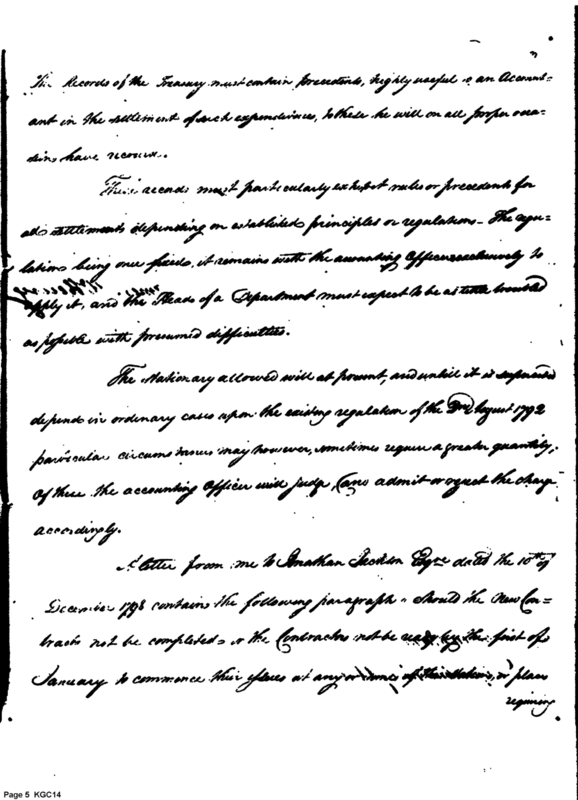 The Records of the Treasury must contain precedents, highly useful to an Account=
ant in the settlement of such expenditures, to these he will on all proper occa=
sions have recourse.
These records must particularly exhibit rules or precedents for
all settlements depending on established principles or regulations - The regu=
lation being once fixed, it remains with the accounting Officer exclusively to
apply it, and the Heads of a Department must expect to be as little troubled
as possible with presumed difficulties.
The Stationary allowed will at present, and until it is
depend in ordinary cases upon the existing regulation of the August 1792
particular circumstances may however, sometimes require a greater quantity,
Of these the accounting Officer will judge, and admit or reject the charge
accordingly.
A letter from me to Jonathan Jackson Esqre dated the 10th of
December 1798 contains the following paragraph "Should the New Con=
tracts not be completed or the Contractors not be ready by the first of
January to commence their issues at any or some of the Stations, or places
requiring
Page 5 KGC14